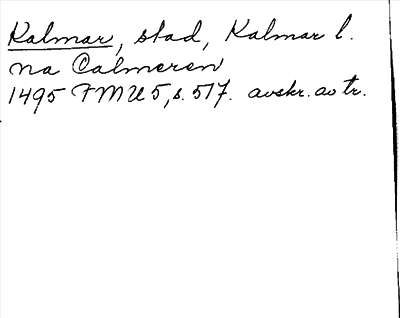 Kalmar, stad, Kalmar l.
na Calmeren
1495 FMU 5, s. 517. avskr. av tr.